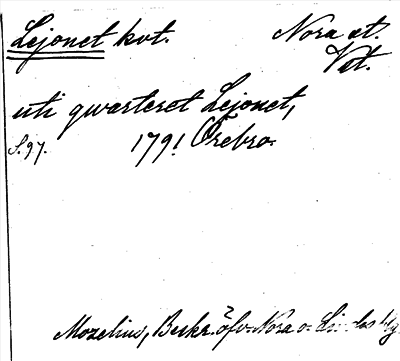 Lejonet kvt. Nora st.
Vst.
uti qwarteret Lejonet,
S. 97. 1791 Örebro.
Mozelius, Beskr. öfv. Nora o.